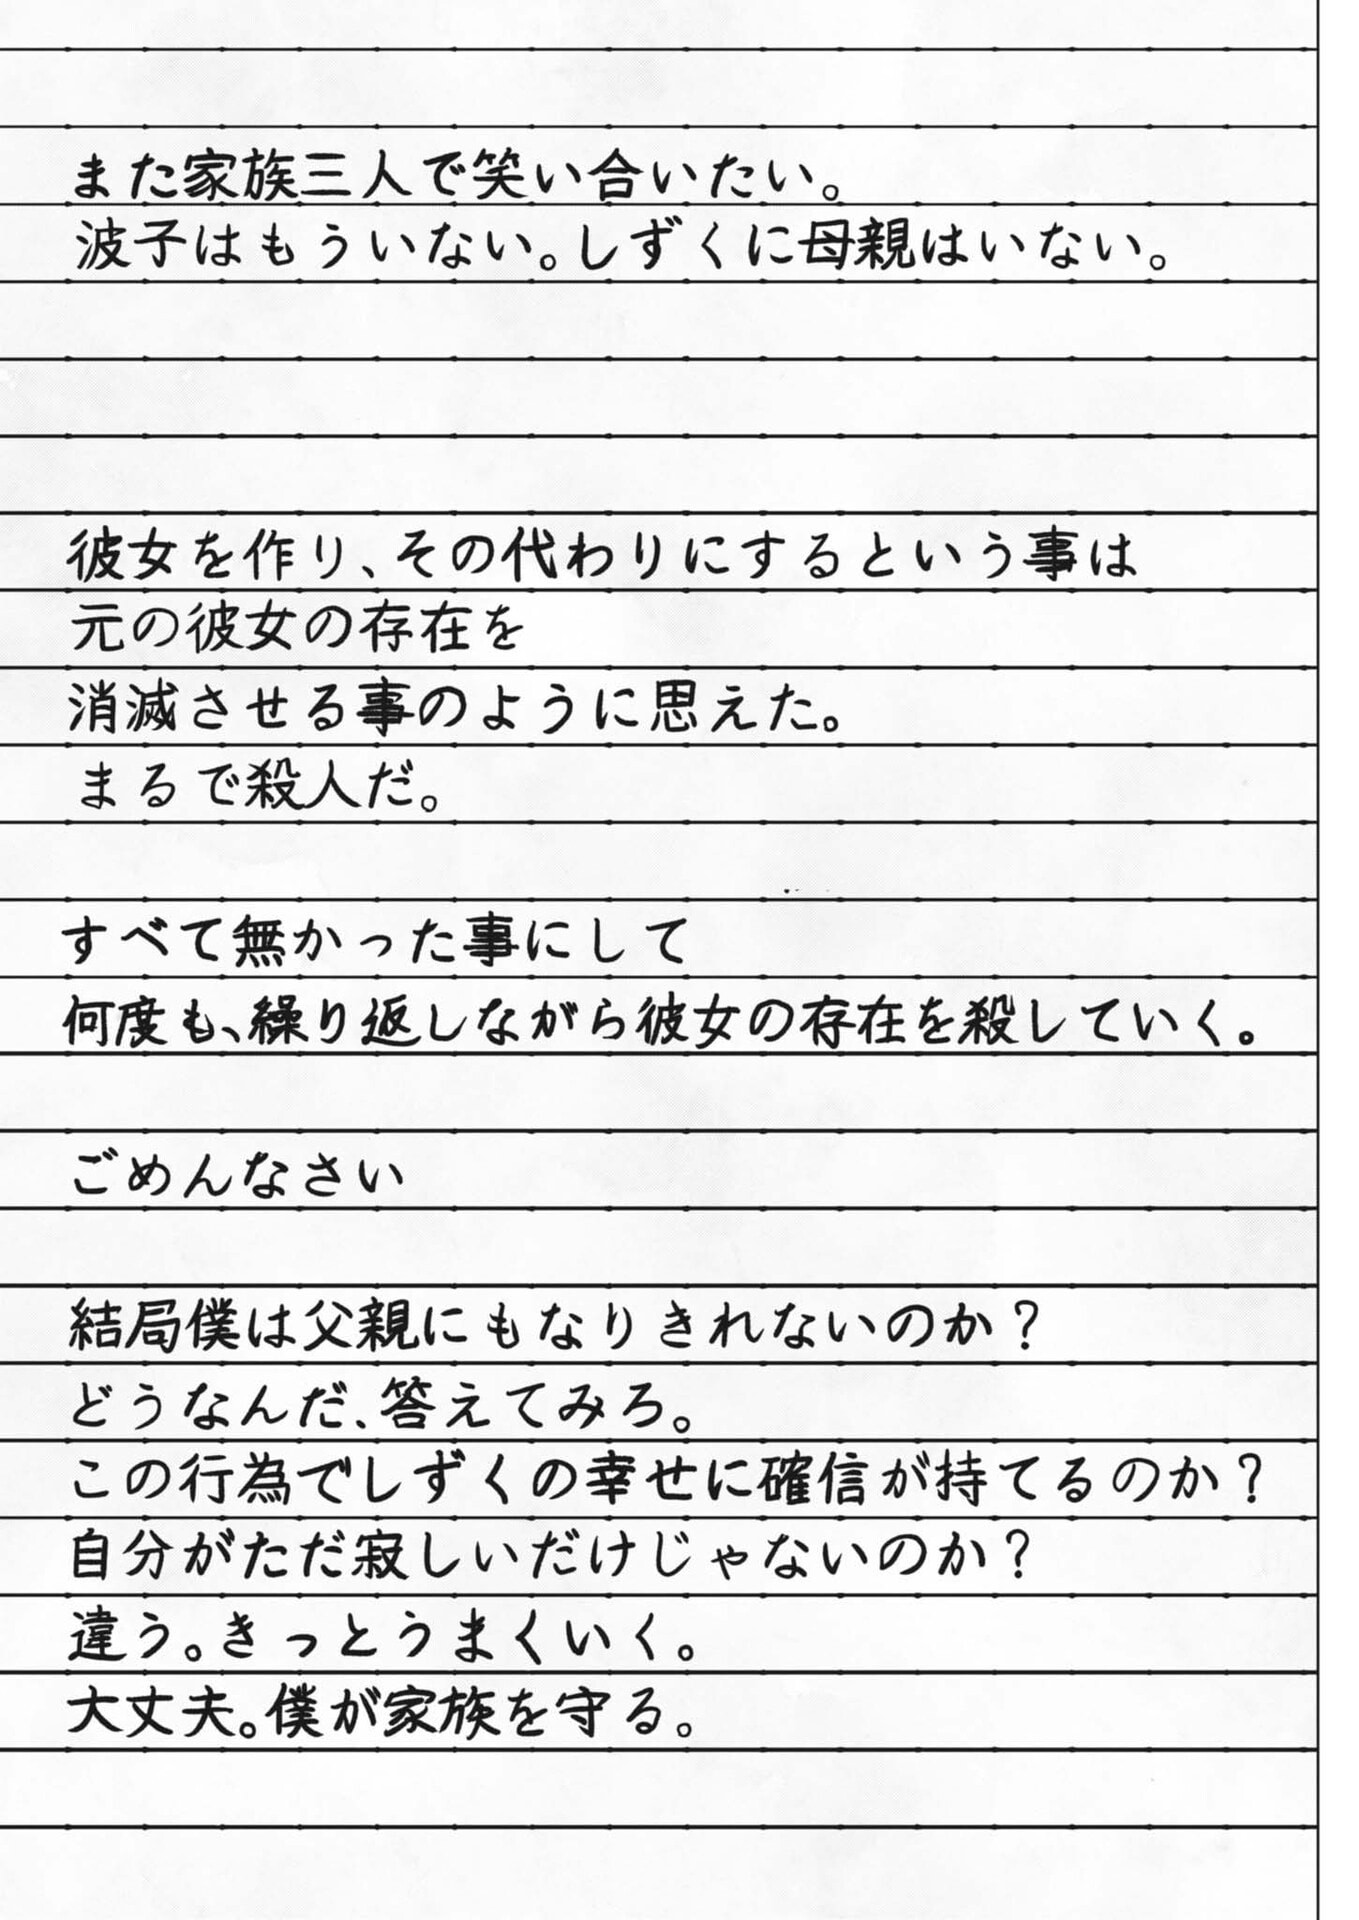 また家族三人で笑い合いたい。
波子はもういない。しずくに母親はいない。
彼女を作り、その代わりにするという事は
元の彼女の存在を
消滅させる事のように思えた。
まるで殺人だ。
すべて無かった事にして
何度も、繰り返しながら彼女の存在を殺していく。
ごめんなさい
結局僕は父親にもなりきれないのか？
どうなんだ、答えてみろ。
この行為でしずくの幸せに確信が持てるのか？
自分がただ寂しいだけじゃないのか？
違う。きっとうまくいく。
大丈夫。僕が家族を守る。